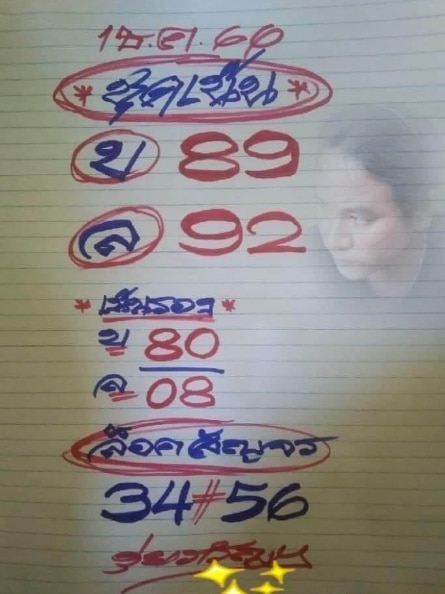 1 ธ.ค. 66
* ชุดเน้น *
บ 89
ล 92
* เน้นรอง *
บ 80
ล 08
ล็อคสัญจร
34#56